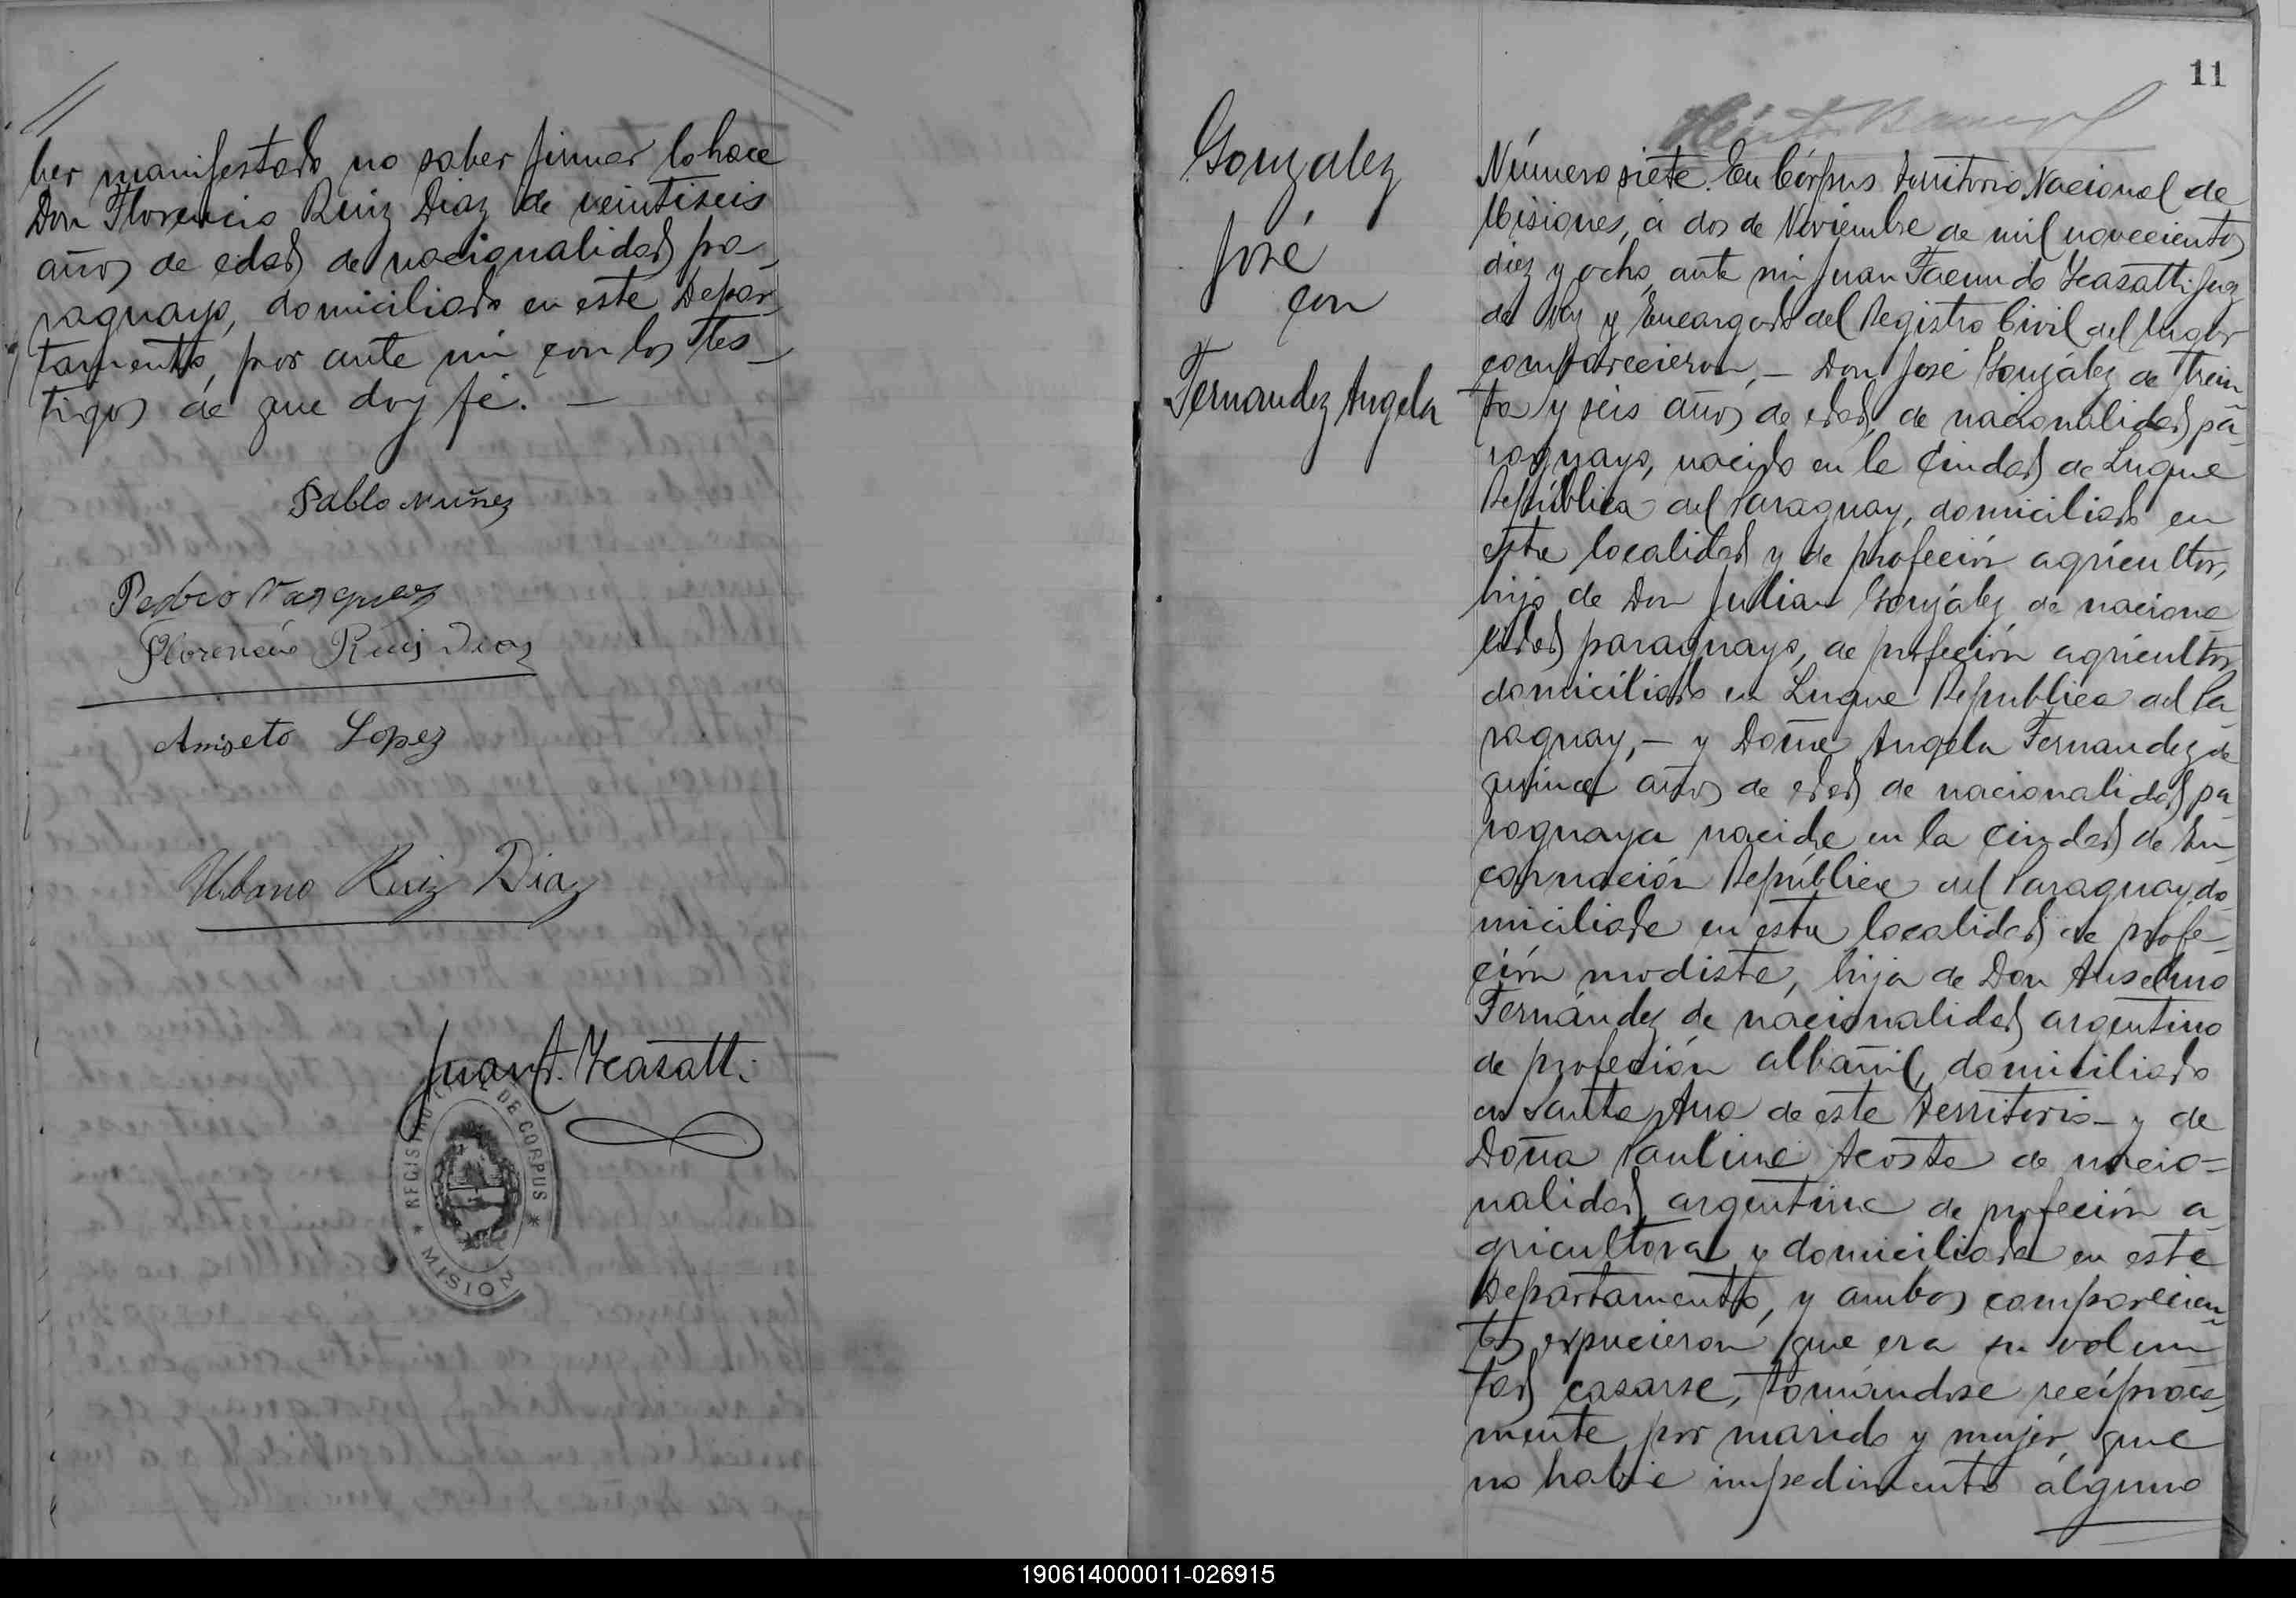 ber manifestado no saber firmar lo hace
Don Florencio Ruiz Diaz de veintiseis
años de edad de nacionalidad pa-
raguayo, domiciliado en este Depar-
tamento, por ante mi con los tes-
tigos de que doy fé. —
Pablo Nuñez
Pedro Vazquez
Florencio Ruiz Diaz
Aniseto Lopez
Urbano Ruiz Diaz
Juan F. Ycasatti
REGISTRO CIVIL DE CORPUS
* MISIONES *
11
Gonzalez
José
con
Fernandez Angela
Número siete. En Córpus territorio Nacional de
Misiones, á dos de Noviembre de mil novecientos
diez y ocho, ante mi Juan Facundo Ycasatti Juez
de Paz y Encargado del Registro Civil del lugar
comparecieron, — Don José González de trein-
ta y seis años de edad, de nacionalidad pa-
raguayo, nacido en la Ciudad de Luque
República del Paraguay, domiciliado en
esta localidad y de profeción agricultor,
hijo de Don Julian González de naciona
lidad paraguayo, de profeción agricultor
domiciliado en Luque Republica del Pa-
raguay, — y Doña Angela Fernandez de
quince años de edad de nacionalidad pa-
raguaya nacida en la Ciudad de En-
carnación República del Paraguay, do-
miciliada en esta localidad de profe-
ción modista, hija de Don Anselmo
Fernández de nacionalidad argentino
de profeción albañil, domiciliado
en Santa Ana de este territorio — y de
Doña Paulina Acosta de nacio=
nalidad argentina de profeción a-
gricultora y domiciliada en este
Departamento, y ambos comparecien-
tes expucieron que era su volun-
tad casarse, tomándose recíproca-
mente por marido y mujer, que
no habia impedimento alguno
190614000011-026915